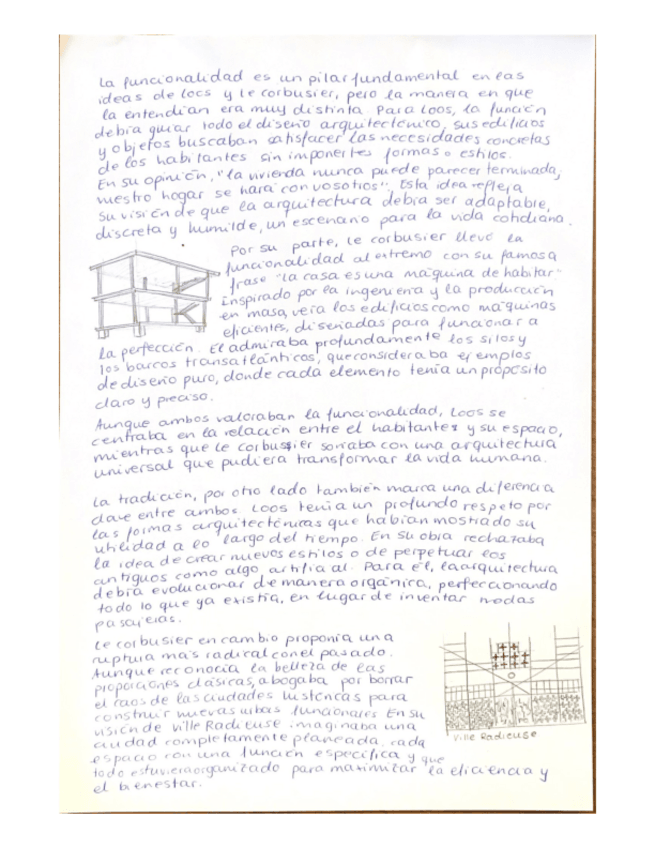 La funcionalidad es un pilar fundamental en las
ideas de Loos y Le corbusier, pero la manera en que
la entendían era muy distinta. Para Loos, la función
debía guiar todo el diseño arquitectónico, sus edificios
y objetos buscaban satisfacer las necesidades concretas
de los habitantes sin imponerles formas o estilos.
En su opinión, "la vivienda nunca puede parecer terminada;
nuestro hogar se hará con vosotros". Esta idea refleja
su visión de que la arquitectura debía ser adaptable,
discreta y humilde, un escenario para la vida cotidiana.
Por su parte, Le corbusier llevó la
funcionalidad al extremo con su famosa
frase "la casa es una máquina de habitar"
inspirado por la ingeniería y la producción
en masa, veía los edificios como máquinas
eficientes, diseñadas para funcionar a
la perfección. El admiraba profundamente los silos y
los barcos transatlánticos, que consideraba ejemplos
de diseño puro, donde cada elemento tenía un propósito
claro y preciso.
Aunque ambos valoraban la funcionalidad, Loos se
centraba en la relación entre el habitantes y su espacio,
mientras que Le corbusier soñaba con una arquitectura
universal que pudiera transformar la vida humana.
La tradición, por otro lado también marca una diferencia
clave entre ambos. Loos tenía un profundo respeto por
las formas arquitectónicas que habían mostrado su
utilidad a lo largo del tiempo. En su obra rechazaba
la idea de crear nuevos estilos o de perpetuar los
antiguos como algo artificial. Para él, la arquitectura
debía evolucionar de manera orgánica, perfeccionando
todo lo que ya existía, en lugar de inventar modas
pasajeras.
Le corbusier en cambio proponía una
ruptura más radical con el pasado.
Aunque reconocía la belleza de las
proporciones clásicas, abogaba por borrar
el caos de las ciudades para
construir nuevas urbes funcionales. En su
visión de Ville Radieuse imaginaba una
ciudad completamente planeada, cada
espacio con una función específica y que
todo estuviera organizado para maximizar la eficiencia y
el bienestar.
Ville Radieuse